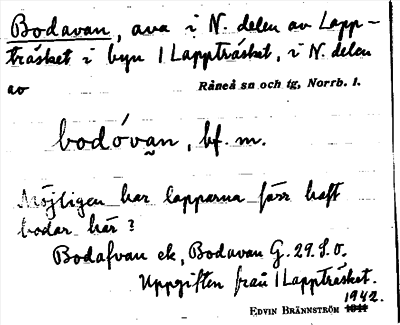 Bodavan, ava i N. delen av Lapp-
träsket i byn 1 Lappträsket, i N. delen
av
Råneå sn och tg, Norrb. l.
bodóvan, bf. m.
Möjligen har lapparna förr haft
bodar här?
Bodafvan ek, Bodavan G. 29. S.O.
Uppgiften från 1 Lappträsket.
1942.
EDVIN BRÄNNSTRÖM 1941